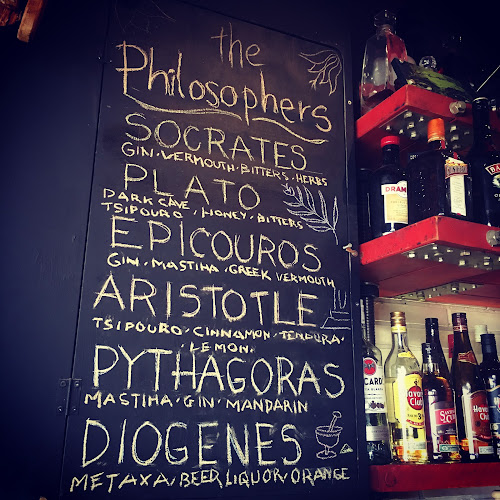 the
Philosophers
SOCRATES
GIN, VERMOUTH, BITTERS, HERBS
PLATO
DARK CAVE
TSIPOURO, HONEY, BITTERS
EPICOUROS
GIN, MASTIHA, GREEK VERMOUTH
ARISTOTLE
TSIPOURO, CINNAMON, TENDURA,
LEMON
PYTHAGORAS
MASTIHA, GIN, MANDARIN
DIOGENES
METAXA, BEER LIQUOR, ORANGE
DRAM
BACARDI
Havana
Club
Havana
Club